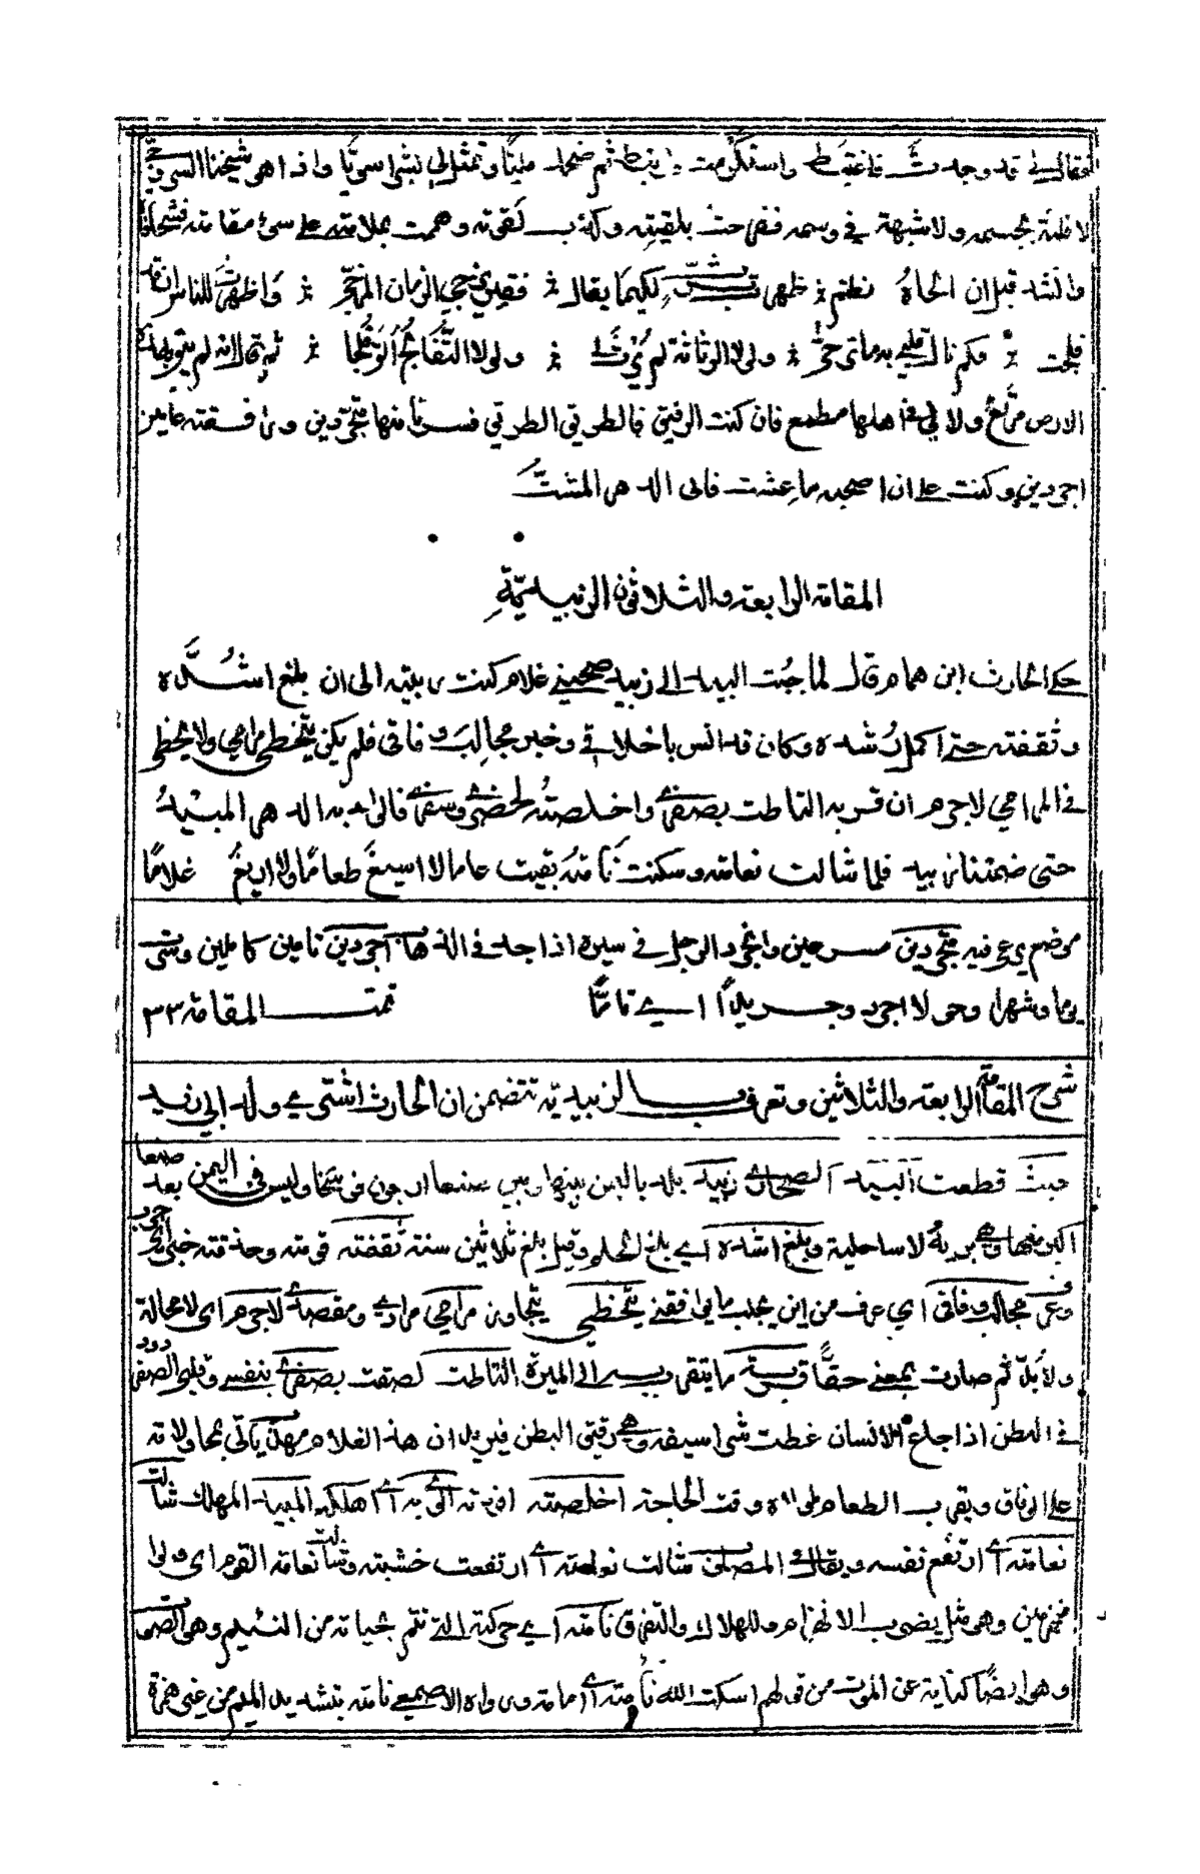 فقال لي قد وجدت فاغتبط واستكرمت فارتبط ثم ضحك مليا وتمثل لي بشرا سويا واذا هو شيخنا السروجي
لا قلبة بجسمه ولا شبهة في وسمه ففرحت بلقيته وكذب لقوته وهممت بملامته على سوء مقامته فشحا فاه
وانشد قبل ان الحاه نظم ظهرت برث لكيما يقال فقير يزجي الزمان المزجى واظهرت للناس ان قد
فلجت فكم نال قلبي به ما ترجى ولولا الرثاثة لم يرث لي ولولا التفالج لم الق فلجا ثم قال انه لم يبق لي بهذه
الارض مرتع ولا في اهلها مطمع فان كنت الرفيق فالطريق الطريق فسرنا منها متجردين ورافقته عامين
اجردين وكنت على ان اصحبه ما عشت فابى الدهر المشت
المقامة الرابعة والثلاثون الزبيدية
حكى الحارث ابن همام قال لما جبت البيد الى زبيد صحبني غلام كنت ربيته الى ان بلغ اشده
وثقفته حتى اكمل رشده وكان قد انس باخلاقي وخبر مجالب وفاقي فلم يكن يتخطى مرامي ولا يخطئ
في المرامي لاجرم ان قربه التاطت بصفري واخلصته لحضري وسفري فالوى به الدهر المبيد
حتى ضمتنا زبيد فلما شالت نعامته وسكنت نامته بقيت عاما لا اسيغ طعاما ولا اريغ غلاما
موضع يرعى فيه متجردين مسرعين وانجرد الرجل في سيره اذا جد في الذهاب اجردين تامين كاملين وتسمى
يوما وشهرا وحولا اجرد وجريدا اي تاما تمت المقامة ٣٣
شرح المقامة الرابعة والثلاثين وتعرف بالزبيدية تتضمن ان الحارث اشترى ولد ابي زيد
جبت قطعت البيد الصحاري زبيد بلد باليمن بينها وبين صنعا اربعون فرسخا وليس في اليمن بعد صنعا
اكبر منها وهي برية لا ساحلية وبلغ اشده اي بلغ الحلم وقيل بلغ ثلاثين سنة ثقفته قومته وحذقته خبر جرب
وعرف مجالب وفاقي اي عرف من اين يجلب ما يوافقني يتخطى يتجاوز مرامي مرادي ومقصدي لاجرم اي لا محالة
ولا بد ثم صارت بمعنى حقا قربه ما يتقرب به الى المبرة التاطت لصقت بصفري بنفسي وقلبي الصفر دود
في البطن اذا جاع الانسان عضت شراسيفه وهي رقيق البطن فيريد ان هذا الغلام ياتي بمحاولاته
على الوفاق ويقرب الطعام وقت الحاجة اخلصته افردته الوى به اي اهلكه المبيد المهلك شالت
نعامته اي ارتفع نفسه ويقال المصلوب شالت نعامته اي ارتفعت خشبته وشالت نعامة القوم اي ولوا
منهزمين وهو مثل يضرب للانهزام وللهلاك والتفرق نامته اي حركته التي تنم بحياته من النئيم وهو الصوت
وهو ايضا كناية عن الموت من قولهم اسكت الله نامته اي اماته ورواه الاصمعي نامته بتشديد الميم من غير همزة